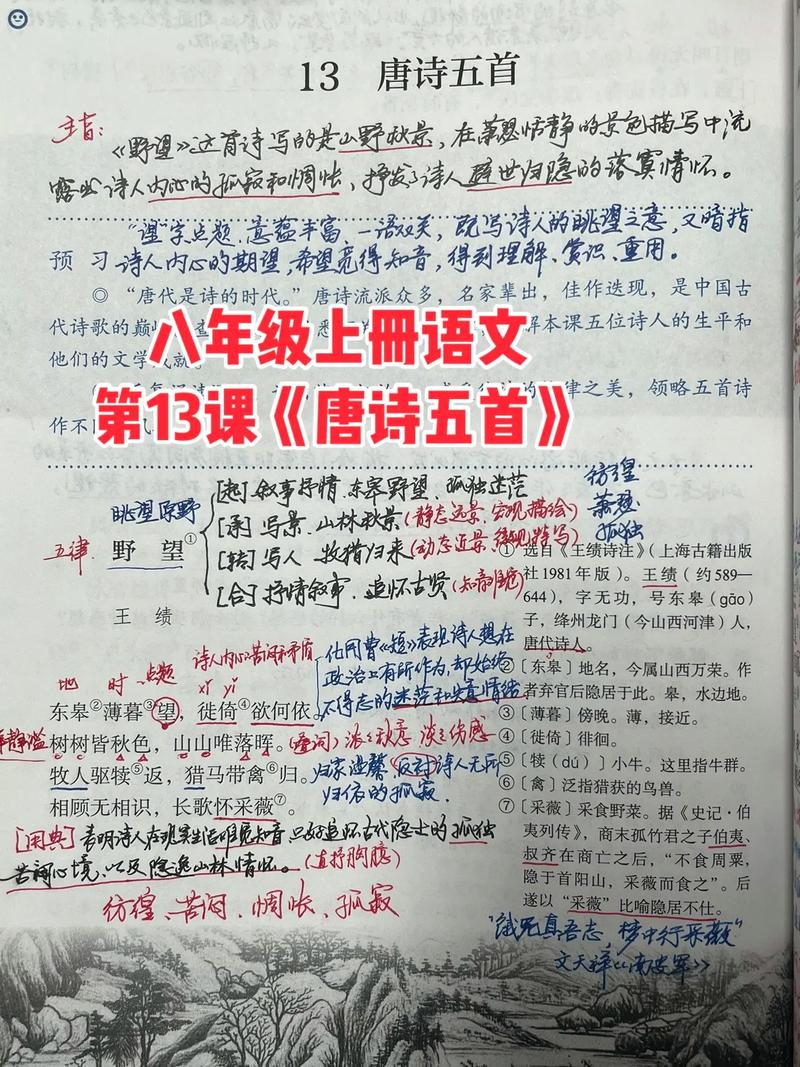 13 唐诗五首
主旨:
《野望》这首诗写的是山野秋景,在萧瑟恬静的景色描写中流
露出诗人内心的孤寂和惆怅,抒发了诗人避世归隐的落寞情怀。
"望"字点题,意蕴丰富,一语双关,既写诗人的眺望之意,又暗指
预 习 诗人内心的期望,希望觅得知音,得到理解、赏识、重用。
◎ “唐代是诗的时代。”唐诗流派众多,名家辈出,佳作迭现,是中国古
代诗歌的巅 解本课五位诗人的生平和
他们的文学成就。
律之美,领略五首诗
作不
八年级上册语文
第13课《唐诗五首》
眺望原野
五律
野 望①
王 绩
[起] 叙事抒情 东皋野望、孤独迷茫
[承] 写景、山林秋景(静态远景、宏观描绘)
[转] 写人 牧猎归来(动态近景、微观特写)
[合] 抒情叙事、追怀古贤
彷徨
萧瑟
孤独
地 时 点题 诗人内心苦闷和矛盾
xǐ yǐ
东皋②薄暮③望,徙倚④欲何依。
树树皆秋色,山山唯落晖。
牧人驱犊⑤返,猎马带禽⑥归。
相顾无相识,长歌怀采薇⑦。
化用曹《短》表现诗人想在
政治上有所作为,却始终
不得志的迷茫和失意情绪
(叠词)浓浓秋意 淡淡伤感
归家温馨 反衬诗人无所
归依的孤寂.
[用典] 表明诗人在现实生活中觅知音 只好追怀古代隐士的孤独
苦闷心境,以及隐逸山林情怀。(直抒胸臆)
彷徨、苦闷、惆怅、孤寂
① 选自《王绩诗注》(上海古籍出版
社1981年版)。王绩(约589—
644),字无功,号东皋(gāo)
子,绛州龙门(今山西河津)人,
唐代诗人。
②〔东皋〕地名,今属山西万荣。作
者弃官后隐居于此。皋,水边地。
③〔薄暮〕傍晚。薄,接近。
④〔徙倚〕徘徊。
⑤〔犊(dú)〕小牛。这里指牛群。
⑥〔禽〕泛指猎获的鸟兽。
⑦〔采薇〕采食野菜。据《史记·伯
夷列传》,商末孤竹君之子伯夷、
叔齐在商亡之后,“不食周粟,
隐于首阳山,采薇而食之”。后
遂以“采薇”比喻隐居不仕。
"饿死真吾志,梦中行采薇"
文天祥《南安军》